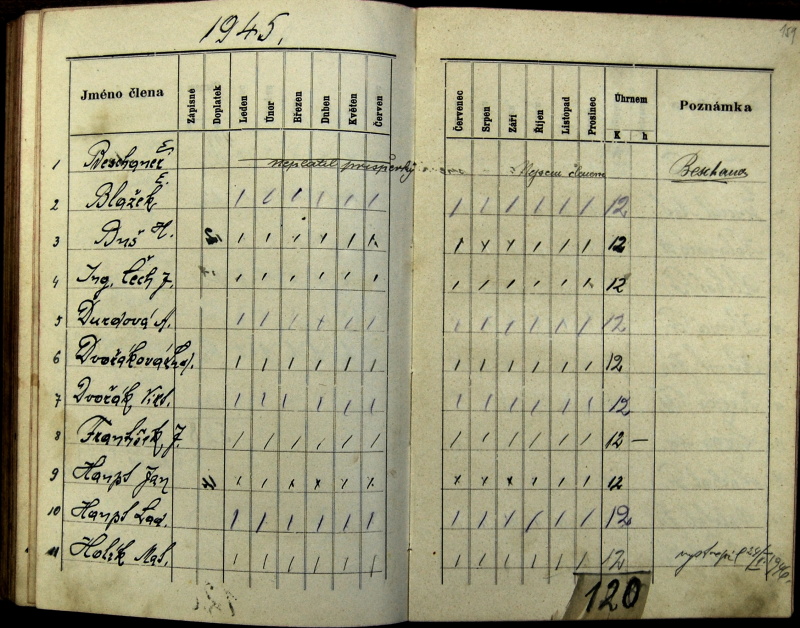 1945.
159
Jméno člena Zápisné Doplatek Leden Únor Březen Duben Květen Červen Červenec Srpen Září Říjen Listopad Prosinec Úhrnem K h Poznámka
1 Beschaner E. neplatil příspěvky Nejsem členem
2 Blažek E. / / / / / / / / / / / / 12
3 Buš H. / / / / / / / / / / / / 12
4 Ing. Čech J. / / / / / / / / / / / / 12
5 A. / / / / / / / / / / / / 12
6 / / / / / / / / / / / / 12
7 Dvořák / / / / / / / / / / / / 12
8 Františ J. / / / / / / / / / / / / 12 —
9 Jan / / x x / x x / x / / x 12
10 Lad. / / / / / / / / / / / / 12
11 Holík Mat. / / / / / / / / / / / / 12 vystoupil
120